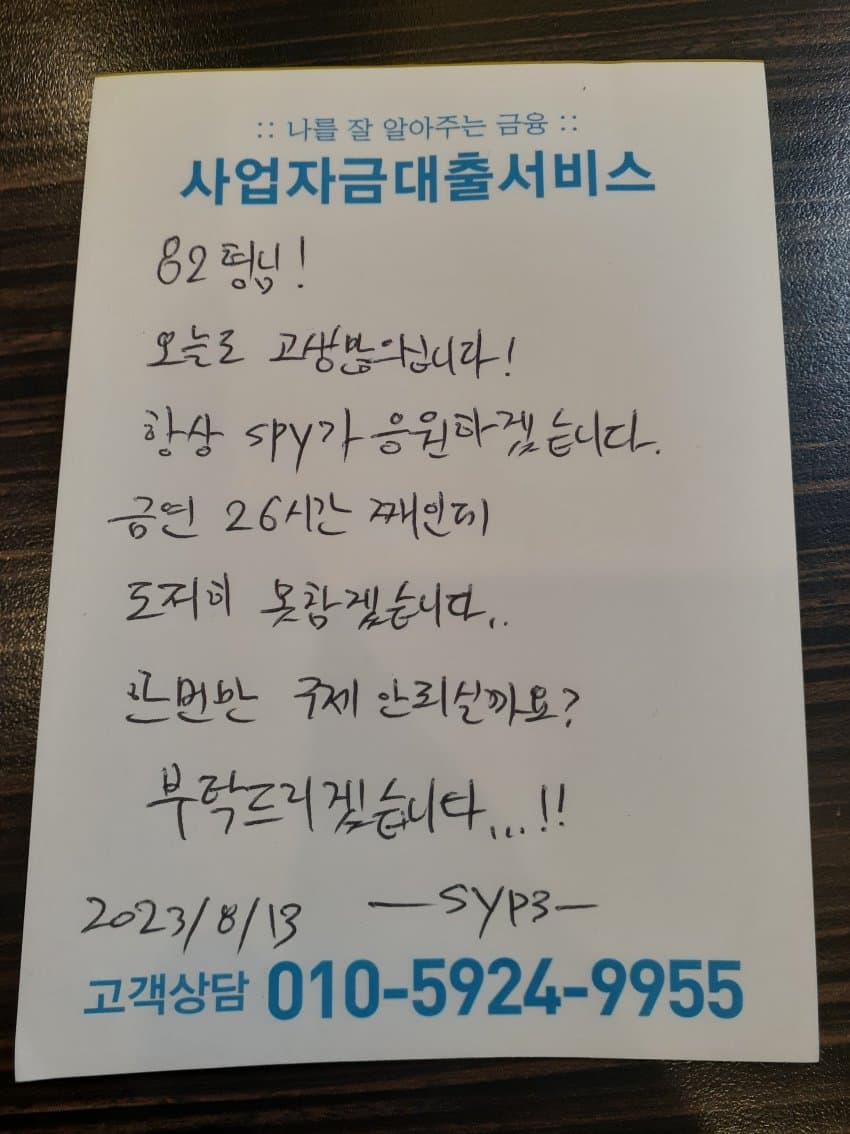 :: 나를 잘 알아주는 금융 ::
사업자금대출서비스
82형님!
오늘도 고생많으십니다!
항상 spy가 응원하겠습니다.
금연 26시간 째인데
도저히 못참겠습니다..
한번만 구제 안되실까요?
부탁드리겠습니다...!!
2023/8/13 -syp3-
고객상담 010-5924-9955